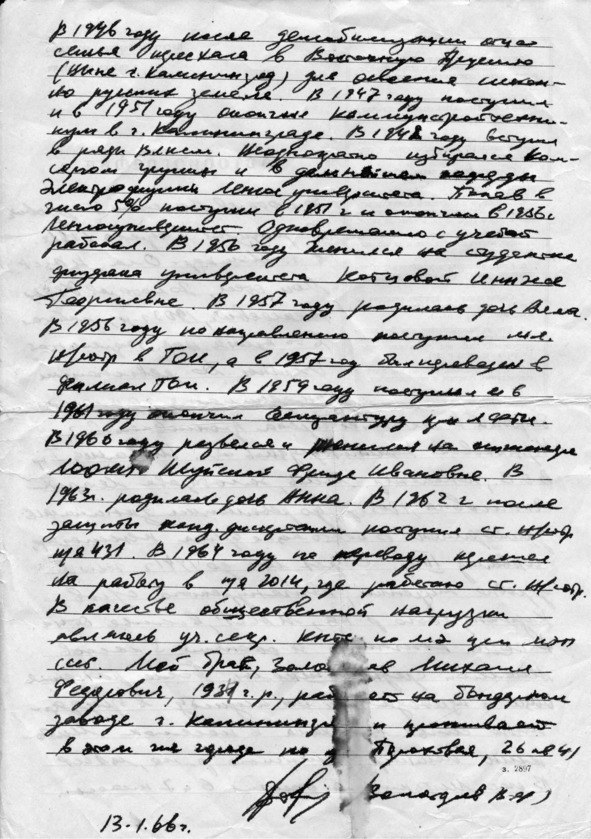 В 1946 году после демобилизации отца
семья переехала в Восточную Пруссию
(ныне г. Калининград) для освоения искон-
но русских земель. В 1947 году поступил
и в 1951 году окончил коммунстройтехни-
кум в г. Калининграде. В 1948 году вступил
в ряды ВЛКСМ. Неоднократно избирался ком-
соргом группы и в дальнейшем
Электрофизики Ленгосуниверситета. Попав в
число 5% поступил в 1951 г и окончил в 1956 г
Ленгосуниверситет. Одновременно с учебой
работал. В 1956 году женился на студентке
физфака университета
Георгиевне. В 1957 году родилась дочь Алла.
В 1956 году по направлению поступил мл.
н/сотр в ГОИ, а в 1957 году был переведен в
филиал ГОИ. В 1959 году поступил и в
1961 году окончил аспирантуру при ЛФТИ.
В 1960 году развелся и женился на инженере
Шуйской Фриде Ивановне. В
1963 г. родилась дочь Анна. В 1962 г после
защиты канд. диссертации поступил ст. н/сотр
п/я 431. В 1964 году по переводу перешел
на работу в п/я 2014, где работаю ст. н/сотр.
В качестве общественной нагрузки
являюсь уч. секр. по при
Мой брат, Михаил
Федорович, 1931 г.р., на бондарном
заводе г. и проживает
в этом же городе по 26 кв 41
з. 2897
13.1.66 г.